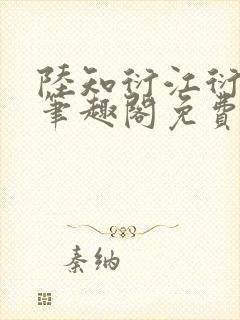 陸知衍江衍
筆趣閣免費
秦纳